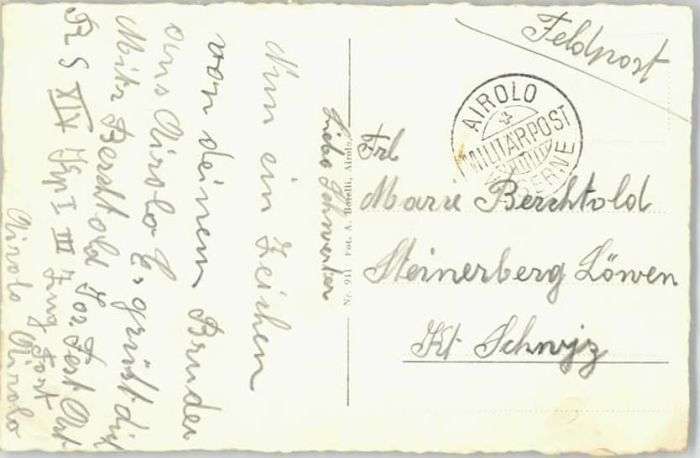 Feldpost
AIROLO
MILITÄRPOST
KASERNE
Frl
Marie Berchtold
Steinerberg Löwen
Kt Schwyz
Nr. 911 Fot. A. Borelli, Airolo
Liebe Schwester
Nun ein Zeichen
von deinem Bruder
aus Airolo Es grüsst dich
Mitr Berchtold Jos. Fest Art
R S XIV Kp I III Zug Fort
Airolo Airolo